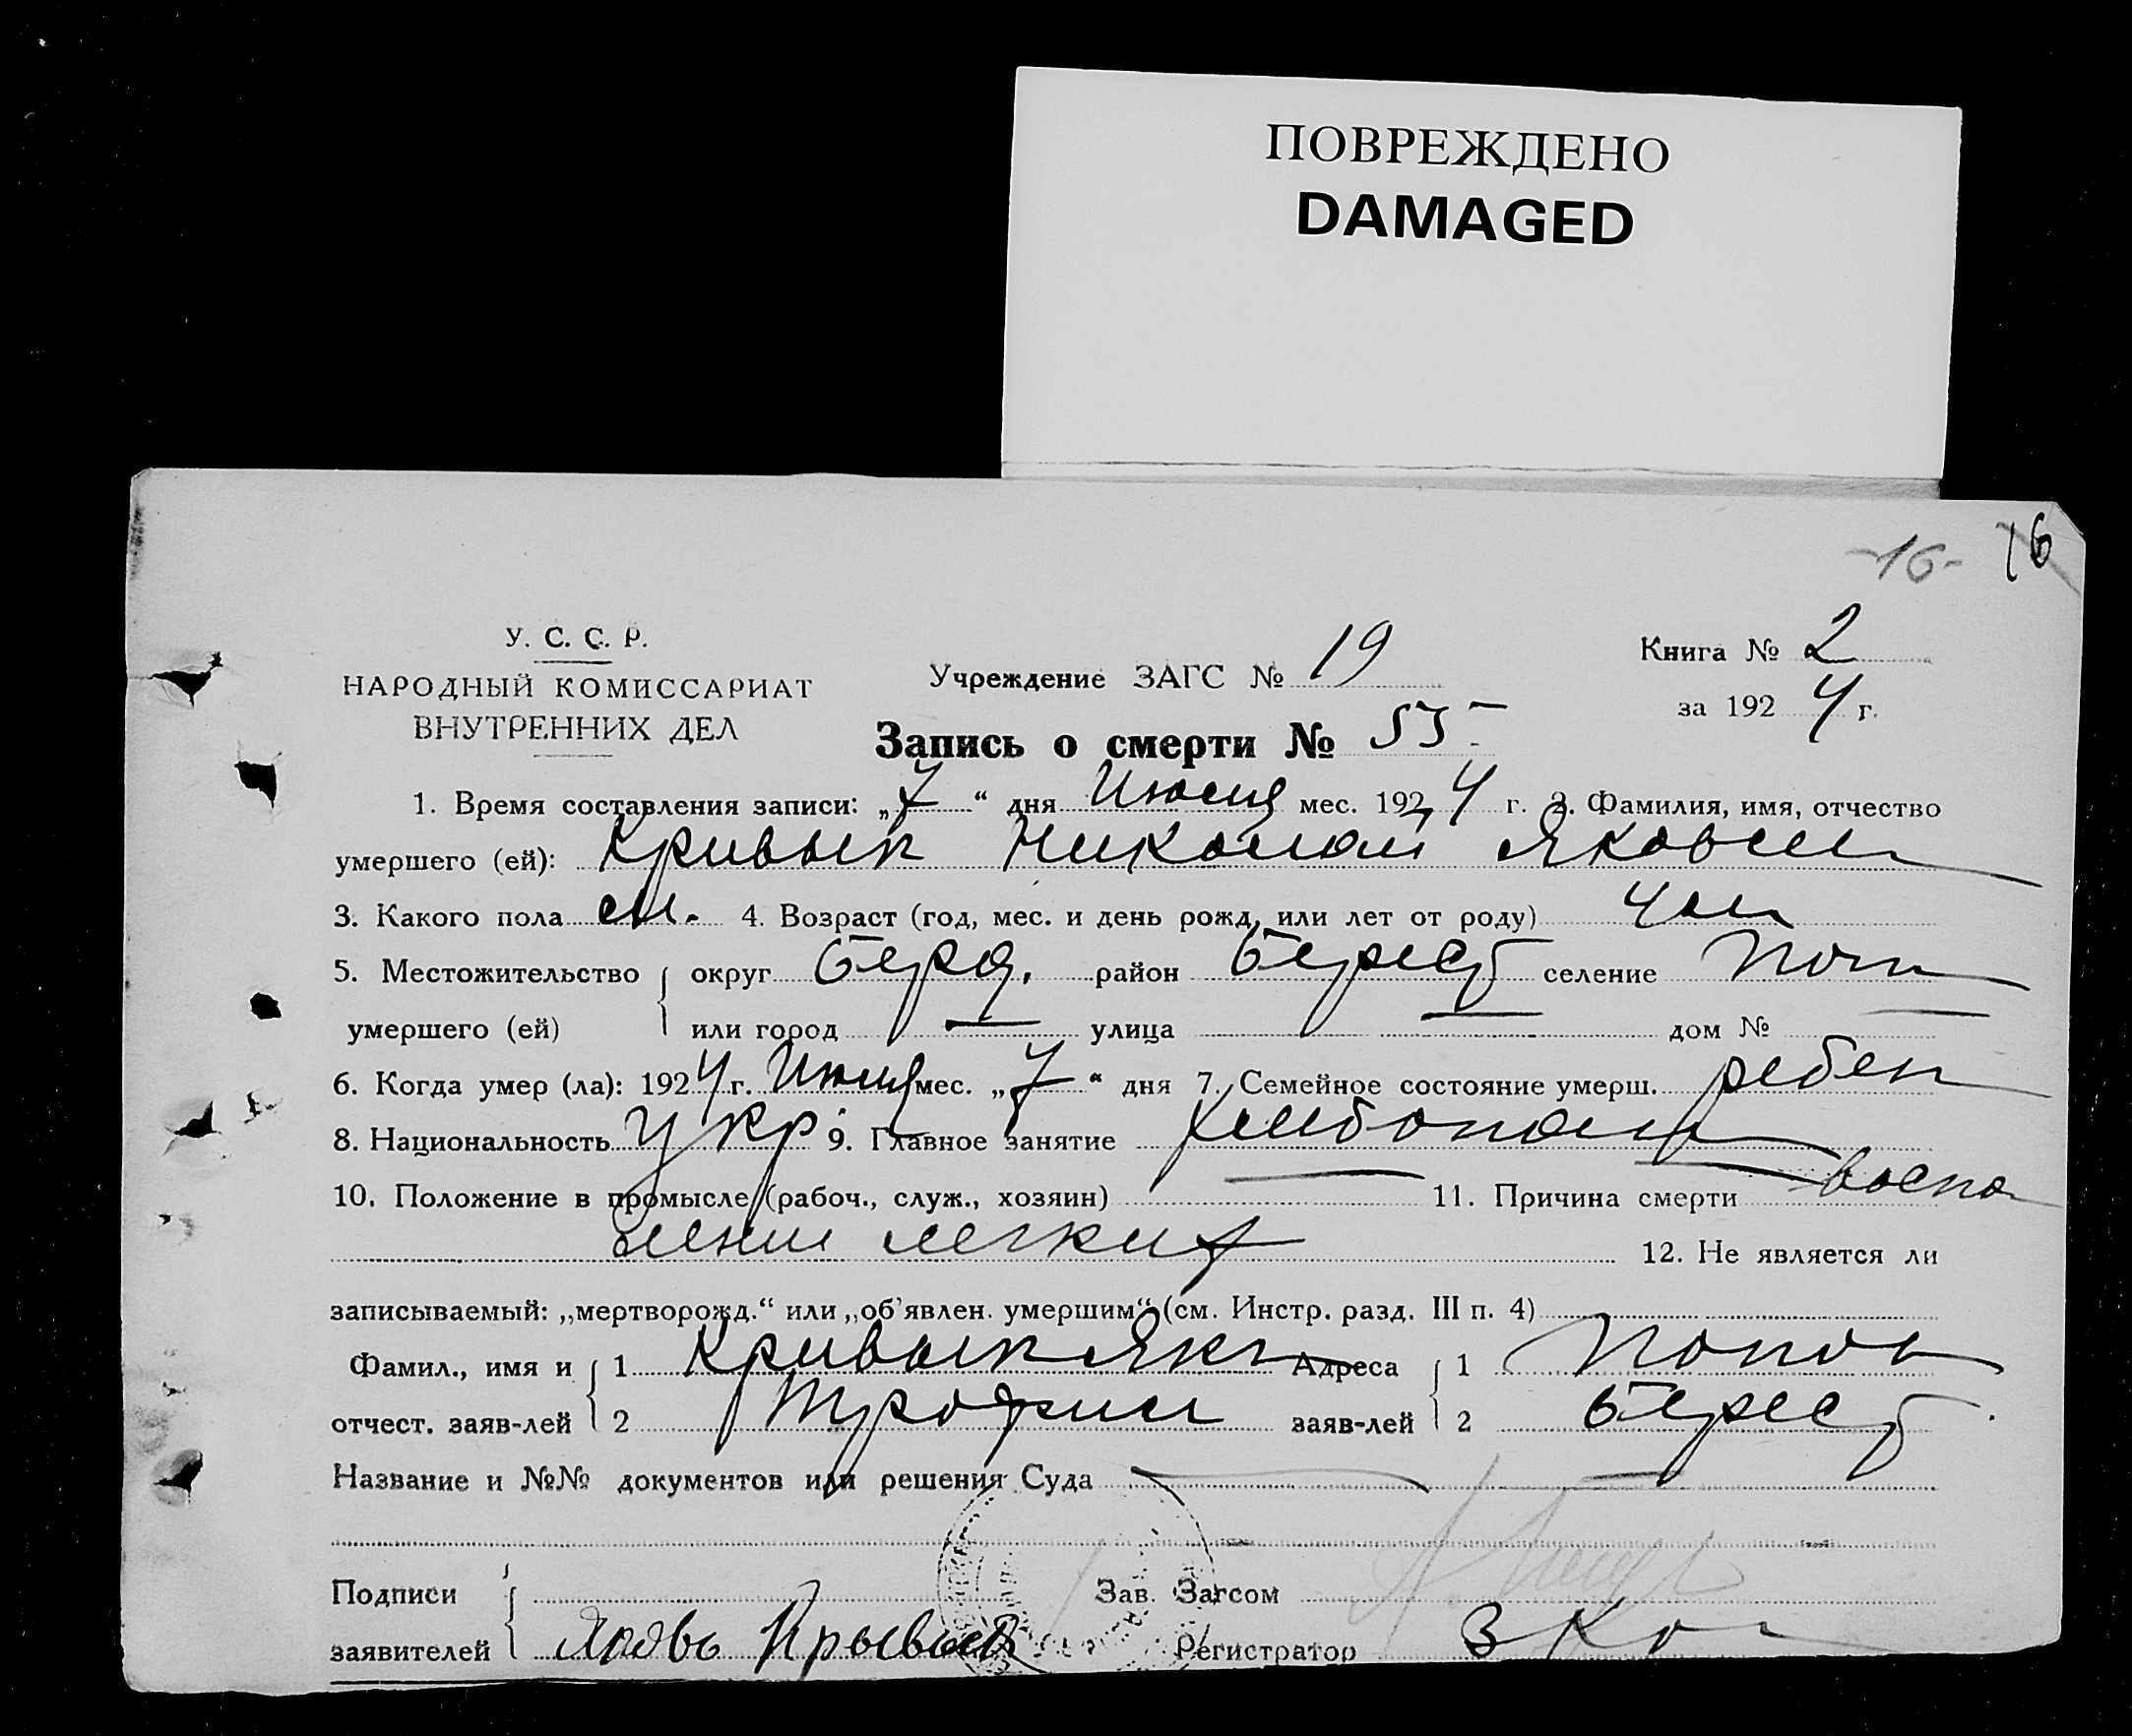 ПОВРЕЖДЕНО
DAMAGED
-16- 16
У. С. С. Р.
НАРОДНЫЙ КОМИССАРИАТ
ВНУТРЕННИХ ДЕЛ
Учреждение ЗАГС № 19
Книга № 2
за 1924 г.
Запись о смерти № 55
1. Время составления записи: „7“ дня Июня мес. 1924 г. 2. Фамилия, имя, отчество
умершего (ей): Кривык Николай Яковлев
3. Какого пола м. 4. Возраст (год, мес. и день рожд, или лет от роду)
5. Местожительство округ Берд. район Берест селение Поп
умершего (ей) или город — улица — дом № —
6. Когда умер (ла): 1924 г. Июня мес. „7“ дня 7. Семейное состояние умерш. ребен
8. Национальность укр. 9. Главное занятие хлебопаш
10. Положение в промысле (рабоч., служ., хозяин) — 11. Причина смерти воспа
лении легких 12. Не является ли
записываемый: „мертворожд.“ или „об'явлен. умершим“ (см. Инстр. разд. III п. 4)
Фамил., имя и 1 Кривык Як Адреса 1 Попов
отчест. заяв-лей 2 Трофим заяв-лей 2 Берест
Название и №№ документов или решения Суда —
Подписи Зав. Загсом
заявителей Регистратор